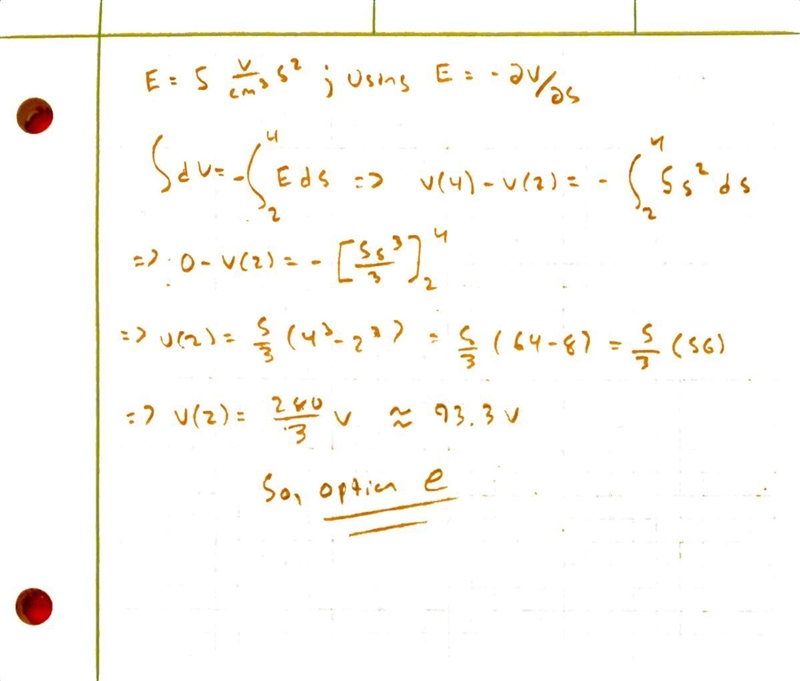 E = 5 V/cm³ s² ; Using E = - ∂V/∂s
∫dV = -∫₂⁴ E ds => V(4) - V(2) = - ∫₂⁴ 5s² ds
=> 0 - V(2) = - [5s³/3]₂⁴
=> V(2) = 5/3 (4³ - 2³) = 5/3 (64 - 8) = 5/3 (56)
=> V(2) = 280/3 V ≈ 93.3 V
So, option e